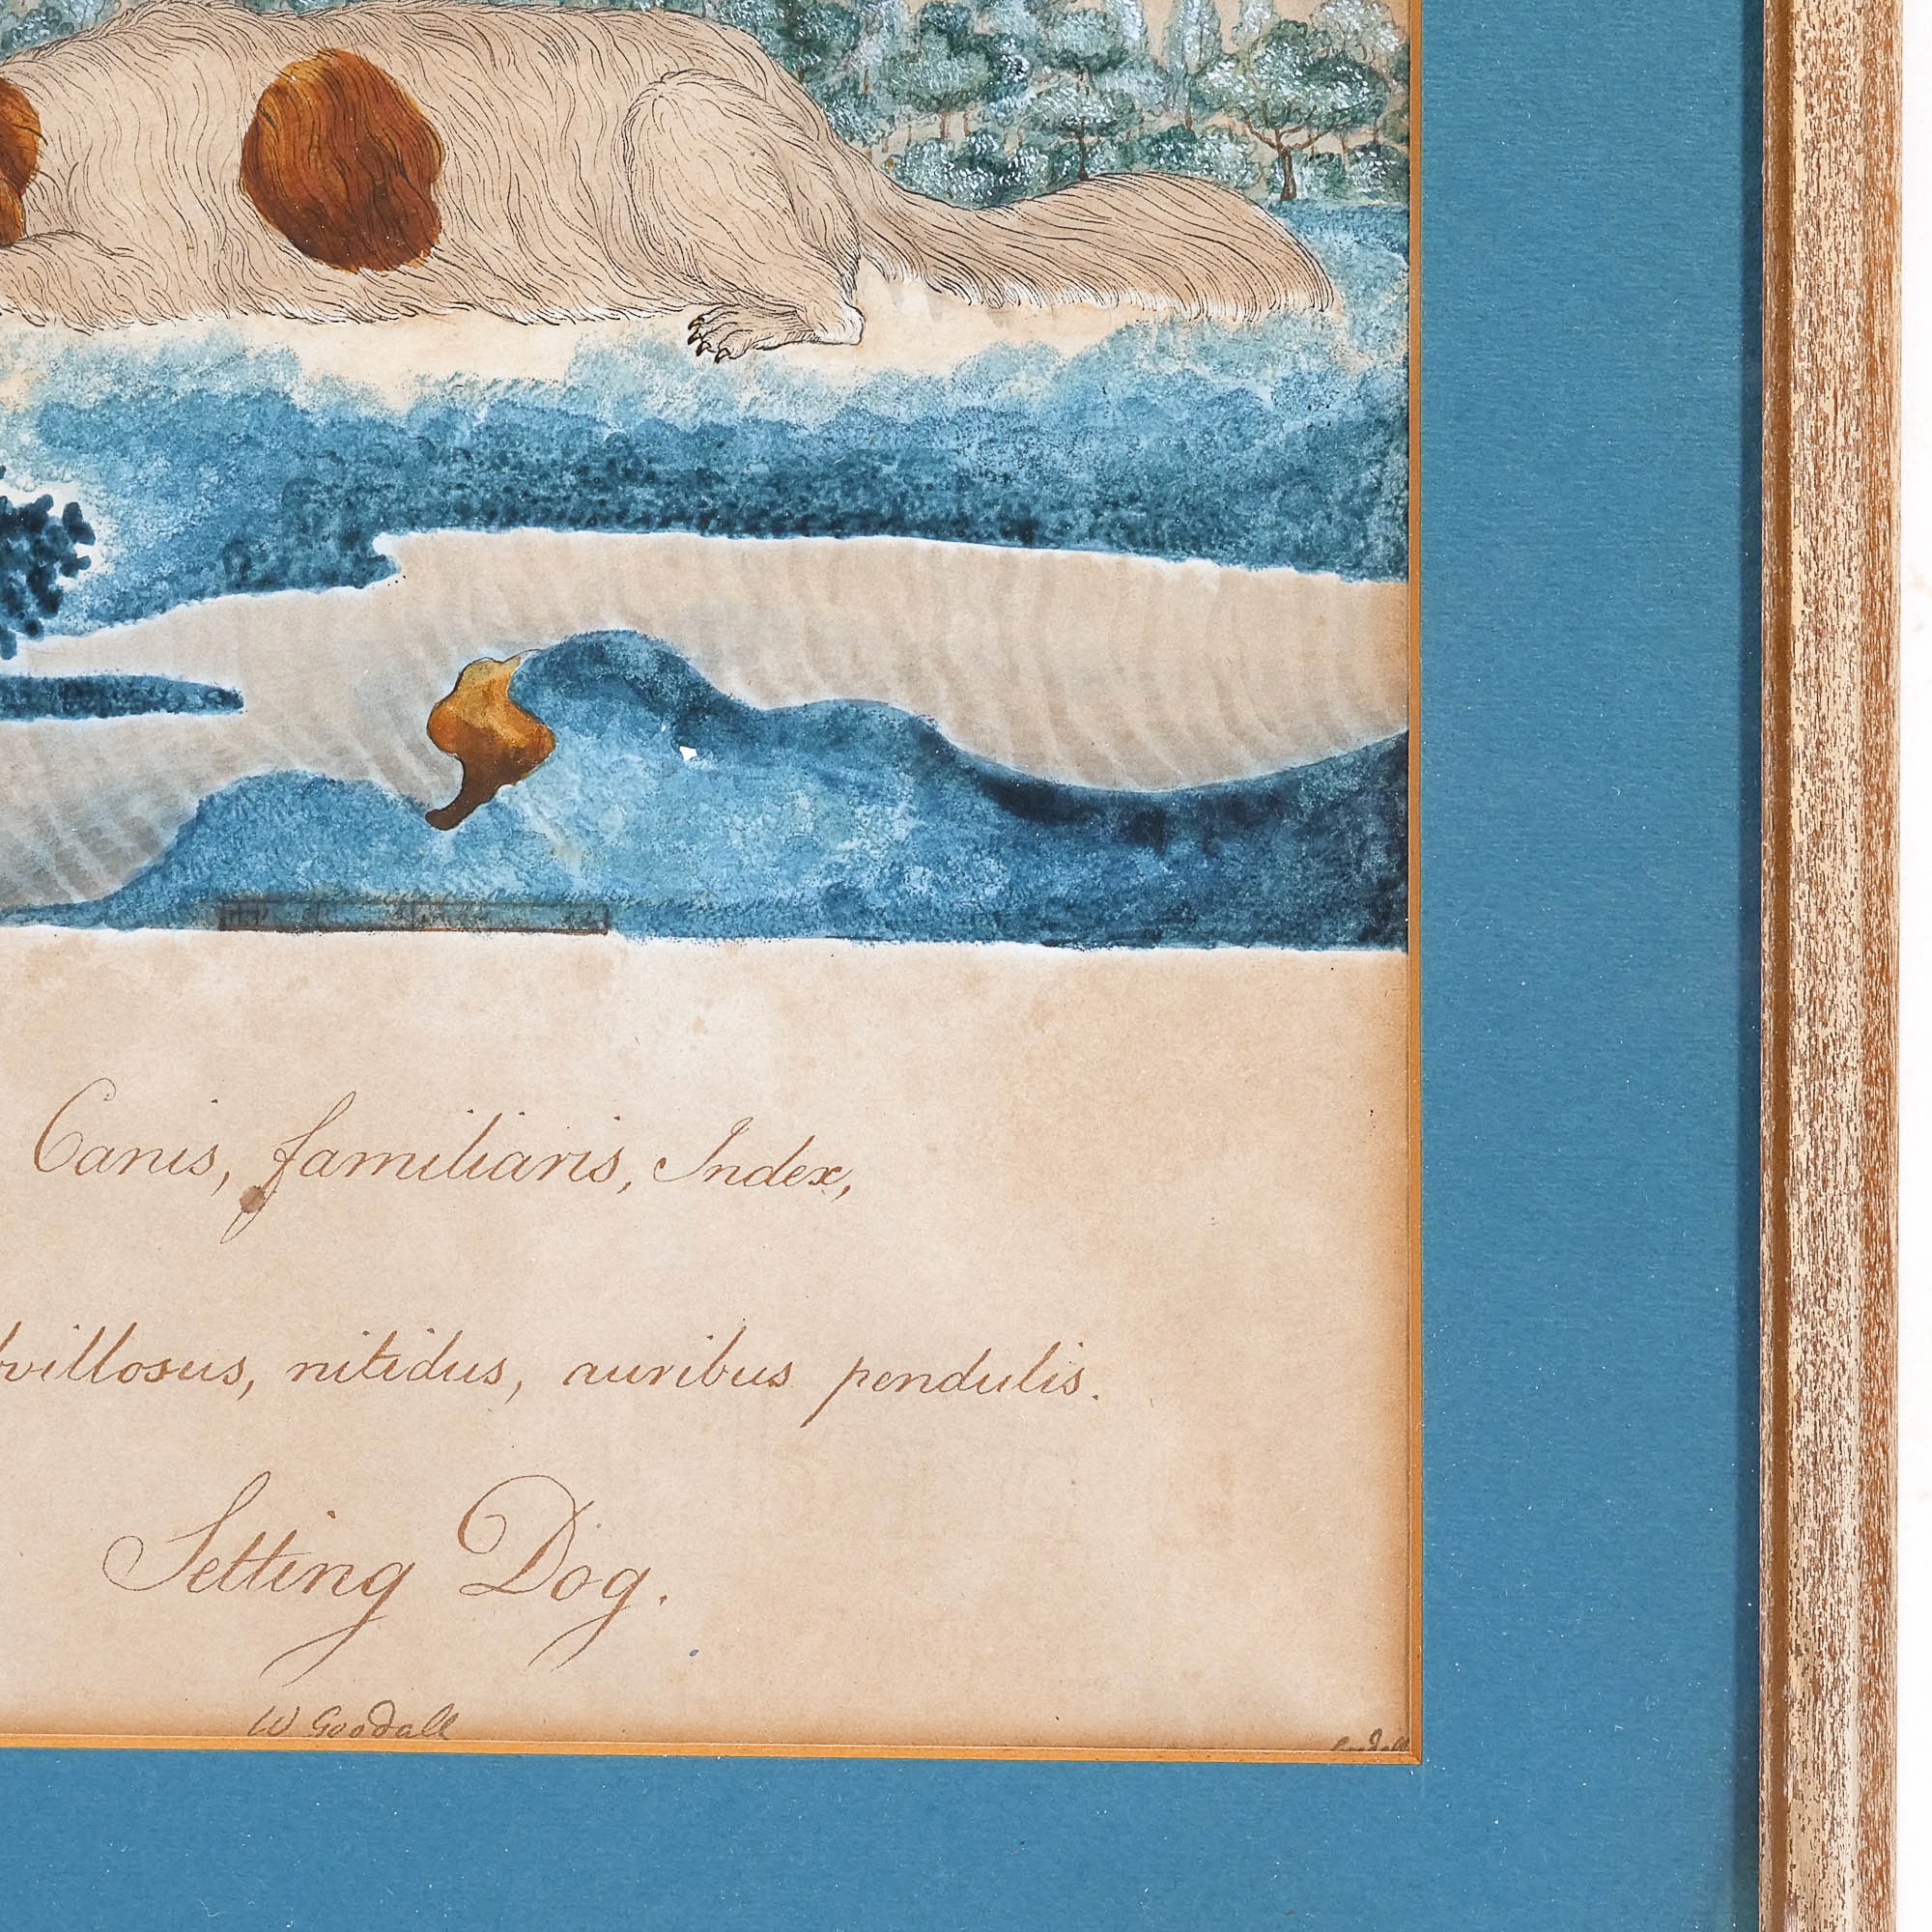 Canis, familiaris, Index,
villosus, nitidus, auribus pendulis.
Setting Dog.
W Goodall